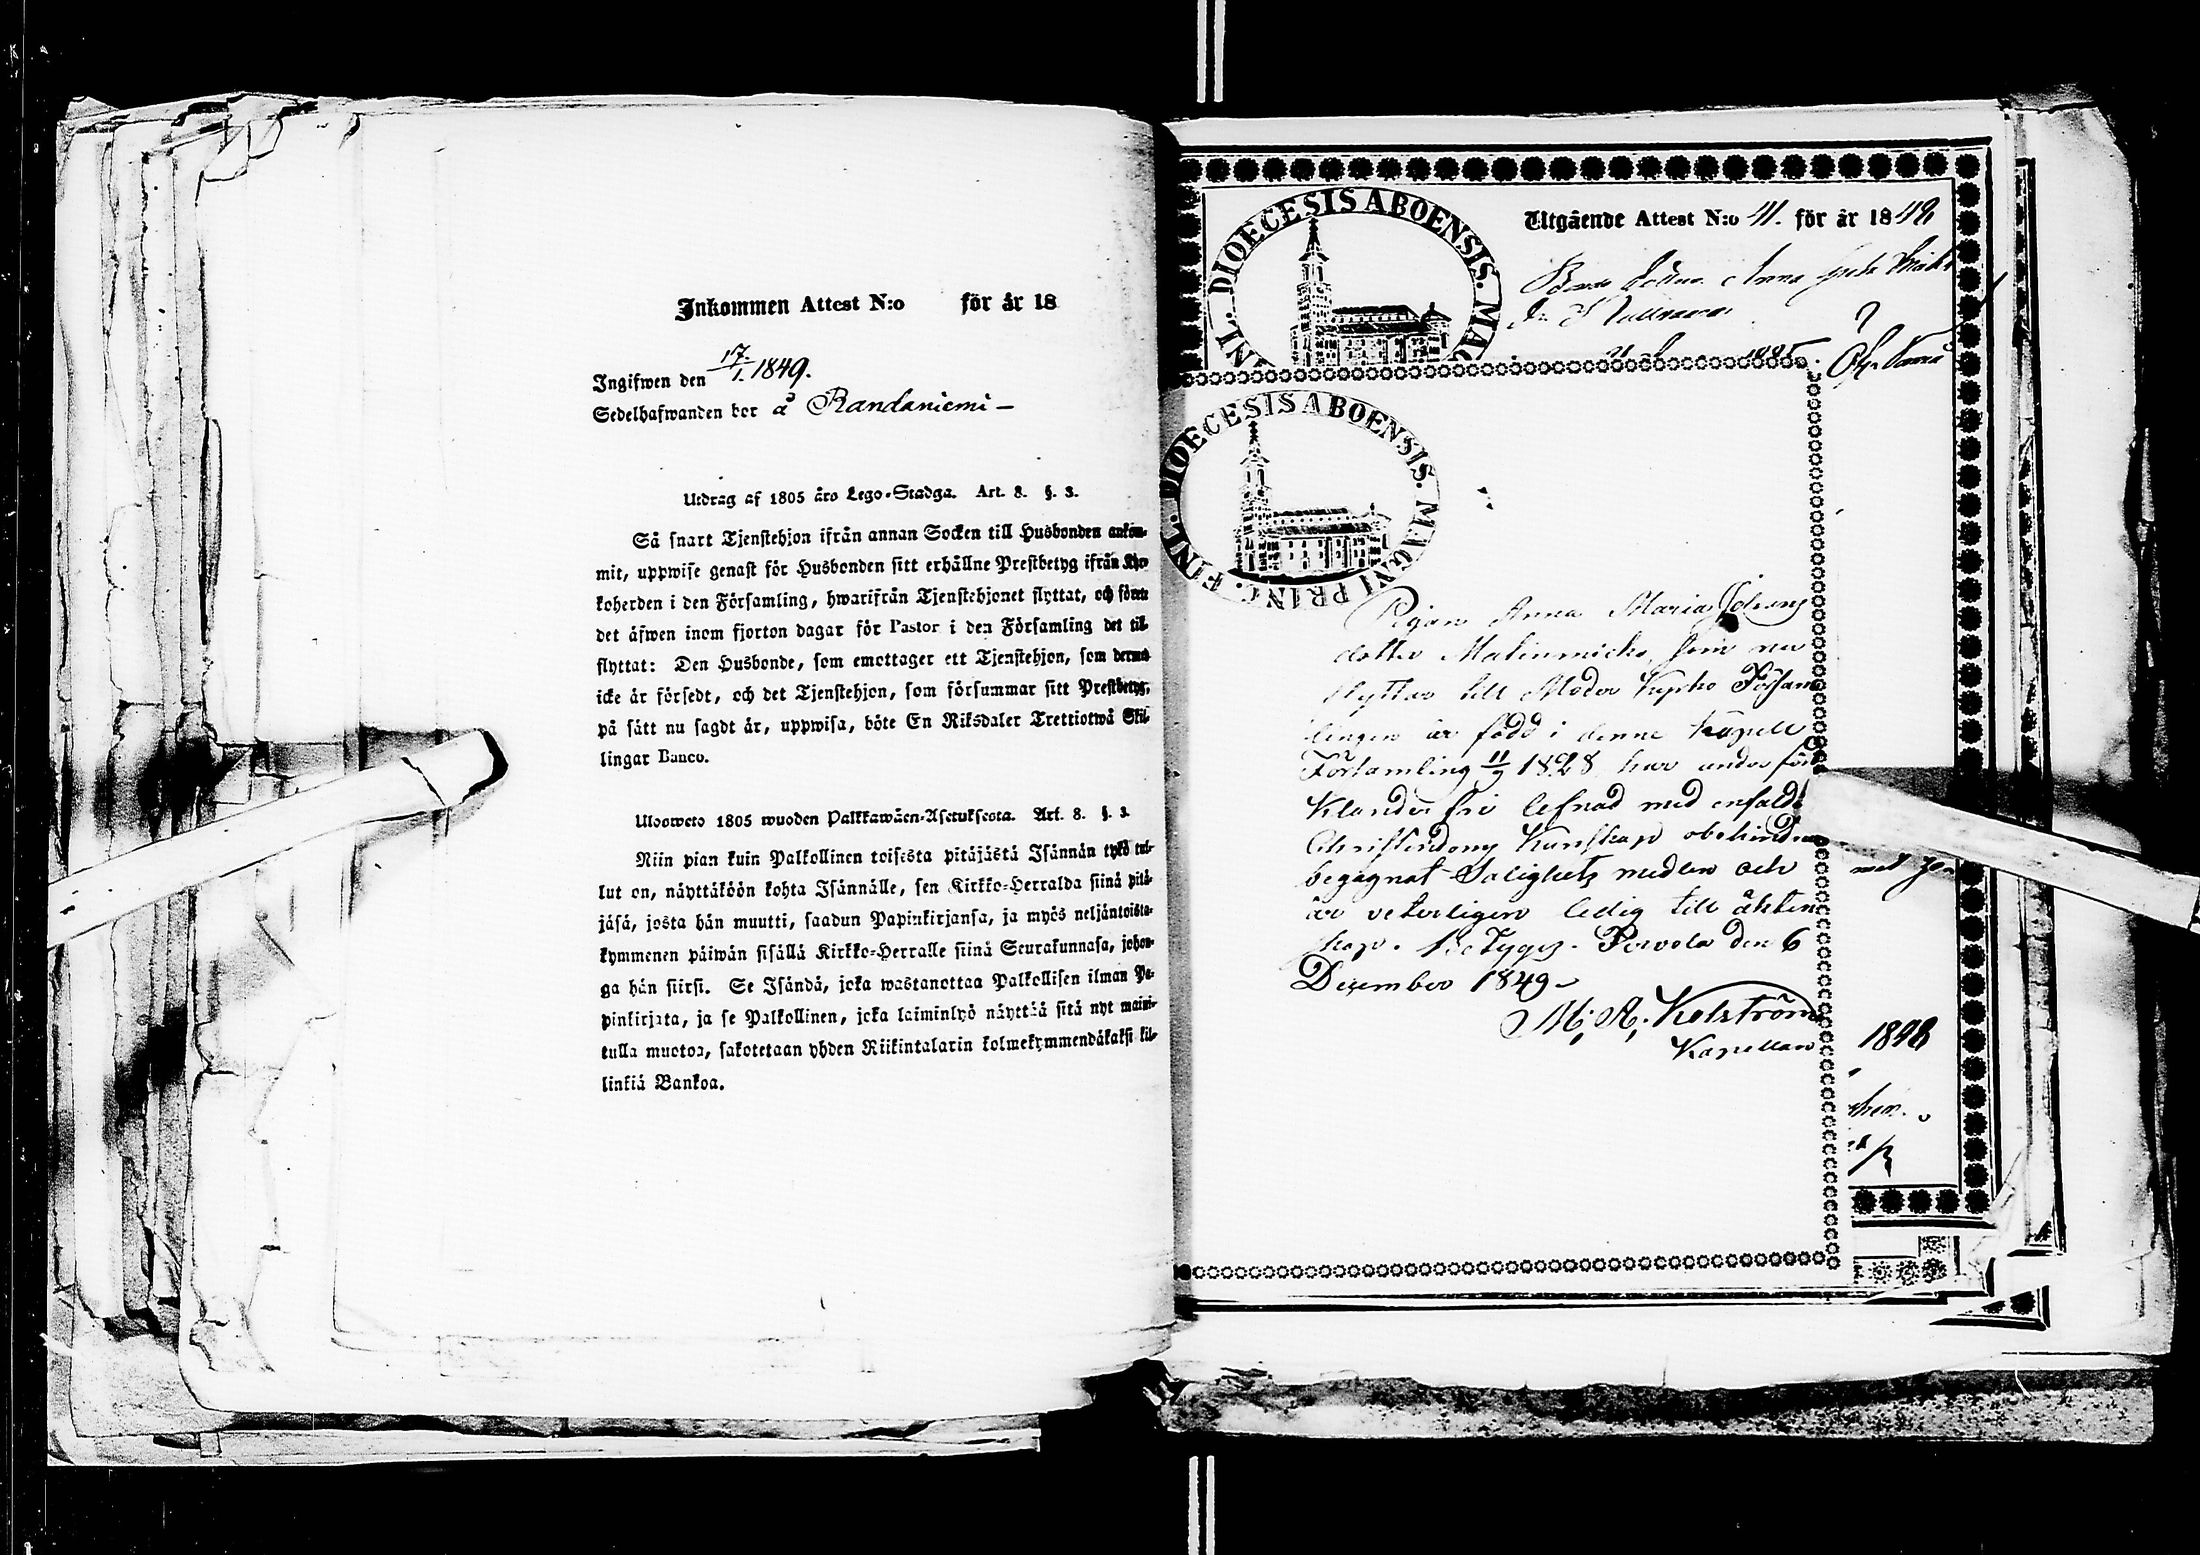 Inkommen Attest N:o för år 18
Ingifwen den 17/1. 1849.
Sedelhafwanden bor å Randaniemi –
Utdrag af 1805 års Lego-Stadga. Art. 8. §. 3.
Så snart Tjenstehjon ifrån annan Socken till Husbonden ankom-
mit, uppwise genast för Husbonden sitt erhållne Prestbetyg ifrån Kyr-
koherden i den Församling, hwarifrån Tjenstehjonet flyttat, och förete
det äfwen inom fjorton dagar för Pastor i den Församling det till-
flyttat: Den Husbonde, som emottager ett Tjenstehjon, som dermed
icke är försedt, och det Tjenstehjon, som försummar sitt Prestbetyg,
på sätt nu sagdt är, uppwisa, böte En Riksdaler Trettiotwå Skil-
lingar Banco.
Ulosweto 1805 wuoden Palkkawäen-Asetuksesta. Art. 8. §. 3.
Niin pian kuin Palkollinen toisesta pitäjästä Isännän tykö tul-
lut on, näyttäköön kohta Isännälle, sen Kirkko-Herralda siinä pitä-
jäsä, josta hän muutti, saadun Papinkirjansa, ja myös neljäntoista-
kymmenen päiwän sisällä Kirkko-Herralle siinä Seurakunnasa, johon-
ga hän siirsi. Se Isändä, joka wastanottaa Palkollisen ilman Pa-
pinkirjata, ja se Palkollinen, joka laiminlyö näyttää sitä nyt maini-
tulla muotoa, sakotetaan yhden Riikintalarin kolmekymmendäkaksi kil-
linkiä Bankoa.
DIOECESIS ABOENSIS. MAG
INL.
Utgående Attest N:o 41. för år 1849
Anna
?
DIOECESIS ABOENSIS. MAGNI PRINC. FINL.
Pigan Anna Maria Johans
dotter Malinmicko, som nu
flyttar till Moder Kyrko Försam
lingen är född i denna Kapell
Församling 11/9 1828, har under fört
Klander fri lefnad med enfaldi
Christendoms Kunskap obehindrad
begagnat Salighets medlen och
är veterligen ledig till äkten
skap. Betygas. Tervola den 6
December 1849 –
M. A. Kolström
Kapellan
1848